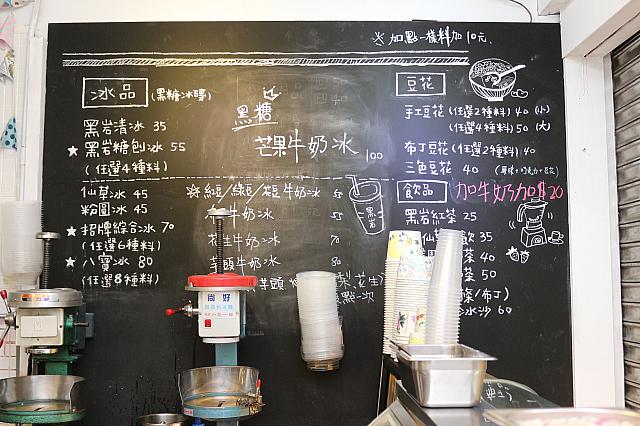 ※加點一樣料加10元
冰品 (黑糖冰磚)
黑岩清冰 35
★ 黑岩糖刨冰 55
(任選4種料)
仙草冰 45
粉圓冰 45
★ 招牌綜合冰 70
(任選6種料)
★ 八寶冰 80
(任選8種料)
黑糖
芒果牛奶冰 100
牛奶冰 55
牛奶冰 70
芋頭牛奶冰 80
黑岩
尚好
豆花
手工豆花 (任選2種料) 40 (小)
(任選4種料) 50 (大)
布丁豆花 (任選2種料) 40
三色豆花 40
飲品 加牛奶加$20
黑岩紅茶 25
飲 35
茶 40
茶 50
/布丁)
冰沙 60